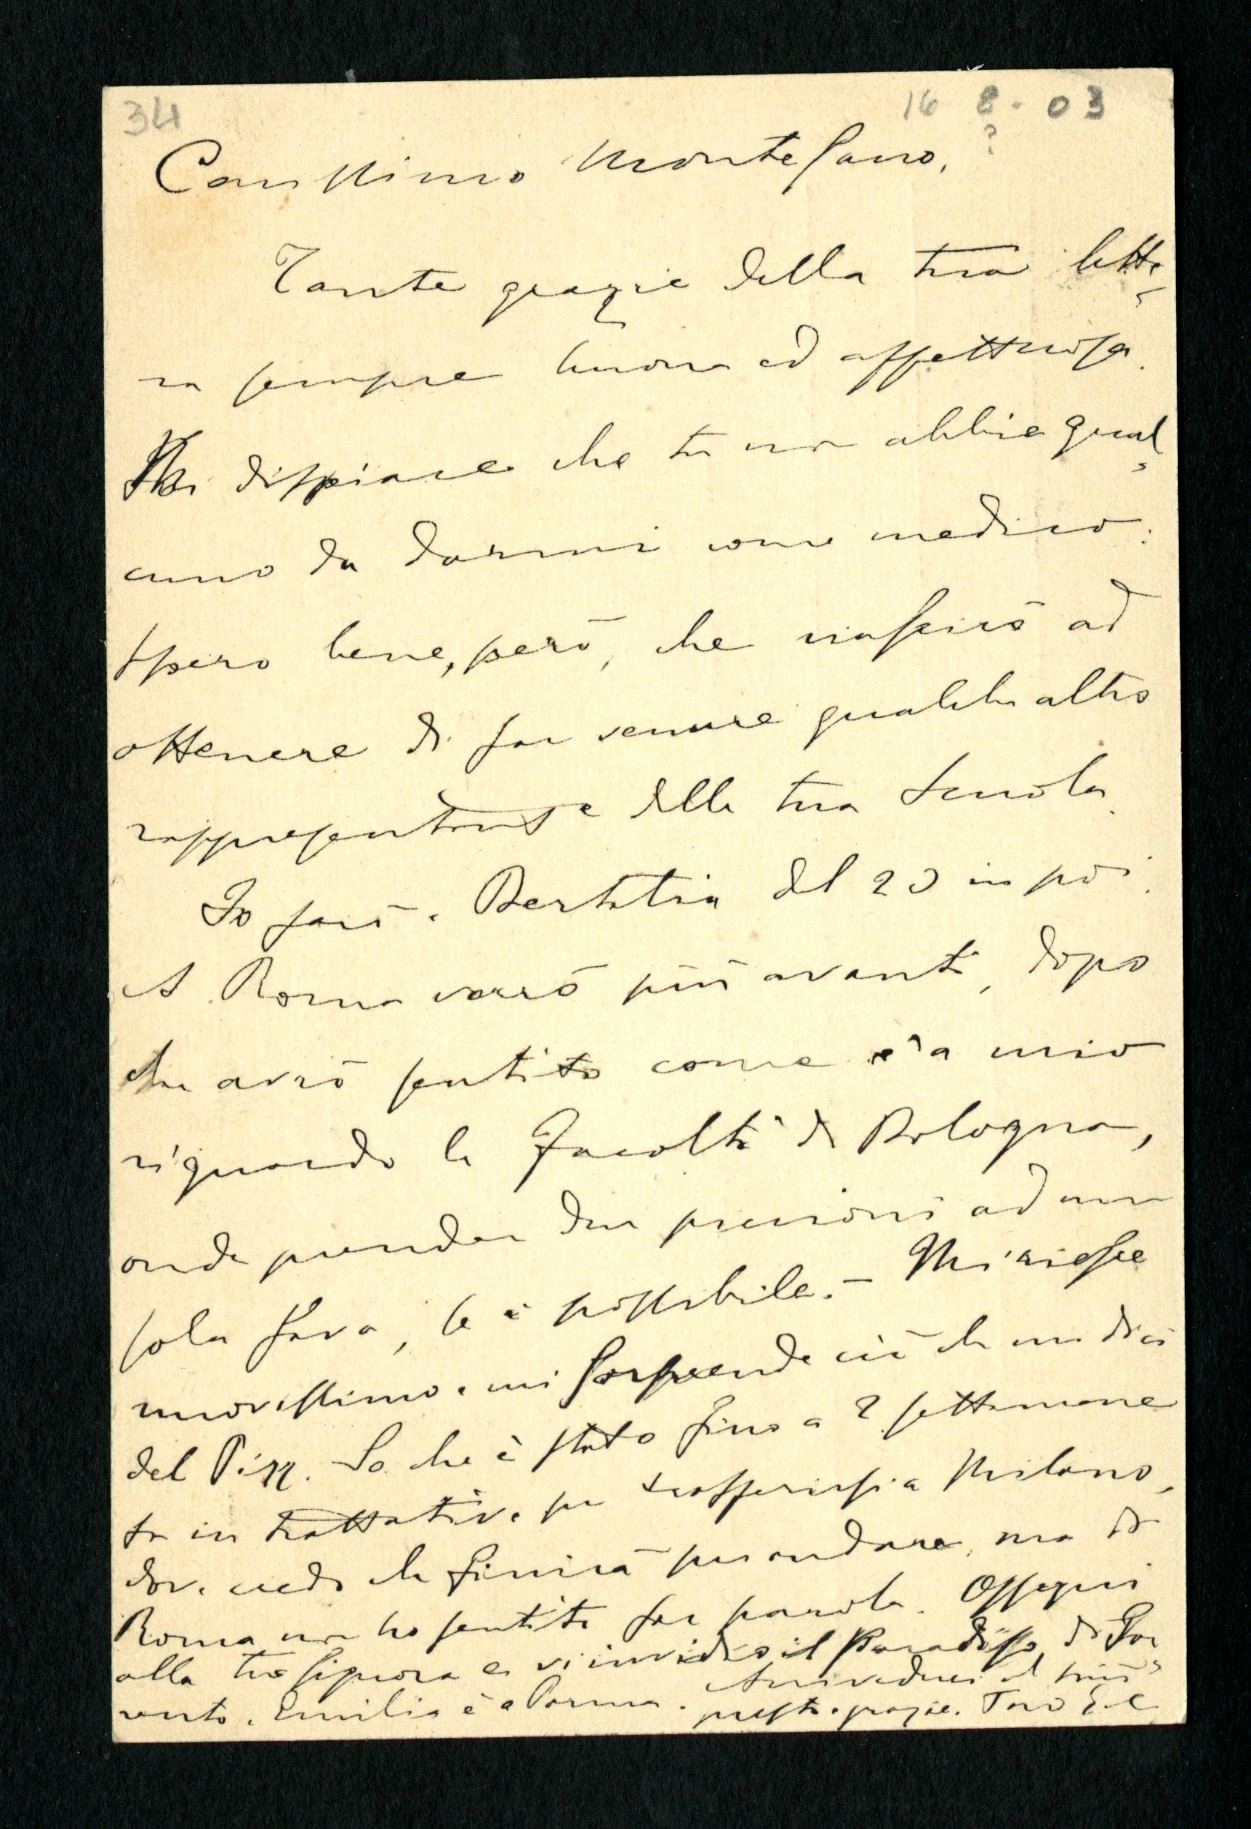 34
16 8. 03
?
Carissimo Montesano,
Tante grazie della tua lette-
ra sempre buona ed affettuosa.
Mi dispiace che tu non abbia qual-
cuno da darmi come medico:
spero bene, però, che riuscirò ad
ottenere di far venire qualche altro
rappresentante della tua Scuola.
Io sarò a Bertalia dal 20 in poi.
A Roma verrò più avanti, dopo
che avrò sentito come è a mio
riguardo la Facoltà di Bologna,
onde prender due piccioni ad una
sola fava, se è possibile. - Mi riesce
nuovissimo e mi sorprende ciò che mi dici
del Pizz. So che è stato fino a 2 settimane
fa in trattative per trasferirsi a Milano,
dove credo che finirà per andare, ma di
Roma non ho sentito far parola. Ossequi
alla tua Signora e vi invidio il Paradiso di
Emilia è a Parma. Arrivederci al più
presto e grazie. Tuo